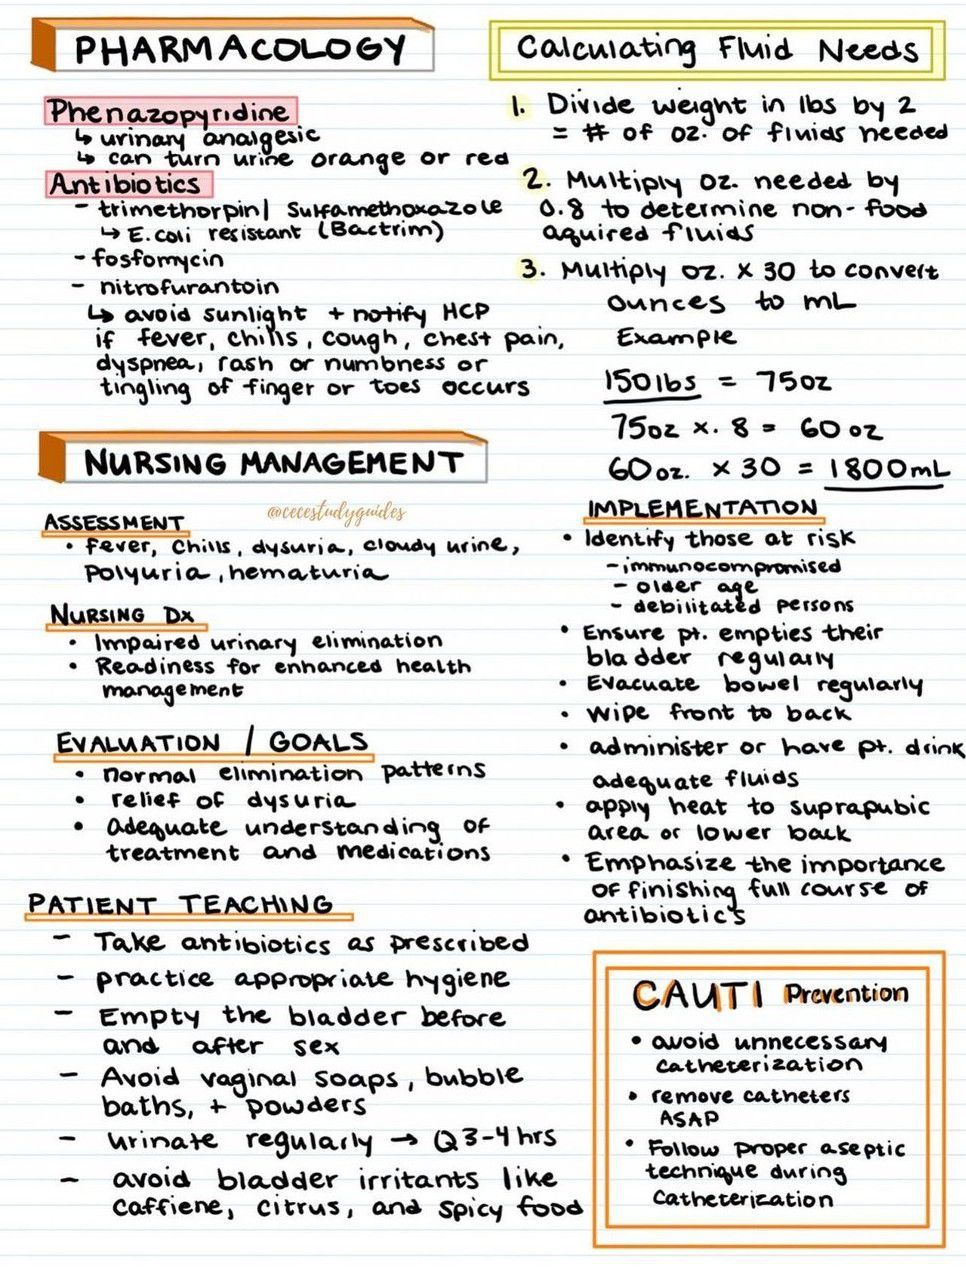 PHARMACOLOGY
Phenazopyridine
↳ urinary analgesic
↳ can turn urine orange or red
Antibiotics
- trimethorpin/ Sulfamethoxazole
↳ E.coli resistant (Bactrim)
- fosfomycin
- nitrofurantoin
↳ avoid sunlight + notify HCP
if fever, chills, cough, chest pain,
dyspnea, rash or numbness or
tingling of finger or toes occurs
Calculating Fluid Needs
1. Divide weight in lbs by 2
= # of oz. of fluids needed
2. Multiply oz. needed by
0.8 to determine non-food
aquired fluids
3. Multiply oz. x 30 to convert
ounces to mL
Example
150lbs = 75oz
75oz x .8 = 60 oz
60oz. x 30 = 1800mL
NURSING MANAGEMENT
@cecestudyguides
ASSESSMENT
• Fever, Chills, dysuria, cloudy urine,
Polyuria, hematuria
NURSING DX
• Impaired urinary elimination
• Readiness for enhanced health
management
EVALUATION / GOALS
• normal elimination patterns
• relief of dysuria
• Adequate understanding of
treatment and medications
PATIENT TEACHING
- Take antibiotics as prescribed
- practice appropriate hygiene
- Empty the bladder before
and after sex
- Avoid vaginal soaps, bubble
baths, + powders
- urinate regularly → Q3-4 hrs
- avoid bladder irritants like
caffiene, citrus, and spicy food
IMPLEMENTATION
• Identify those at risk
- immunocompromised
- older age
- debilitated persons
• Ensure pt. empties their
bladder regularly
• Evacuate bowel regularly
• Wipe front to back
• administer or have pt. drink
adequate fluids
• apply heat to suprapubic
area or lower back
• Emphasize the importance
of finishing full course of
antibiotics
CAUTI Prevention
• avoid unnecessary
catheterization
• remove catheters
ASAP
• Follow proper aseptic
technique during
Catheterization